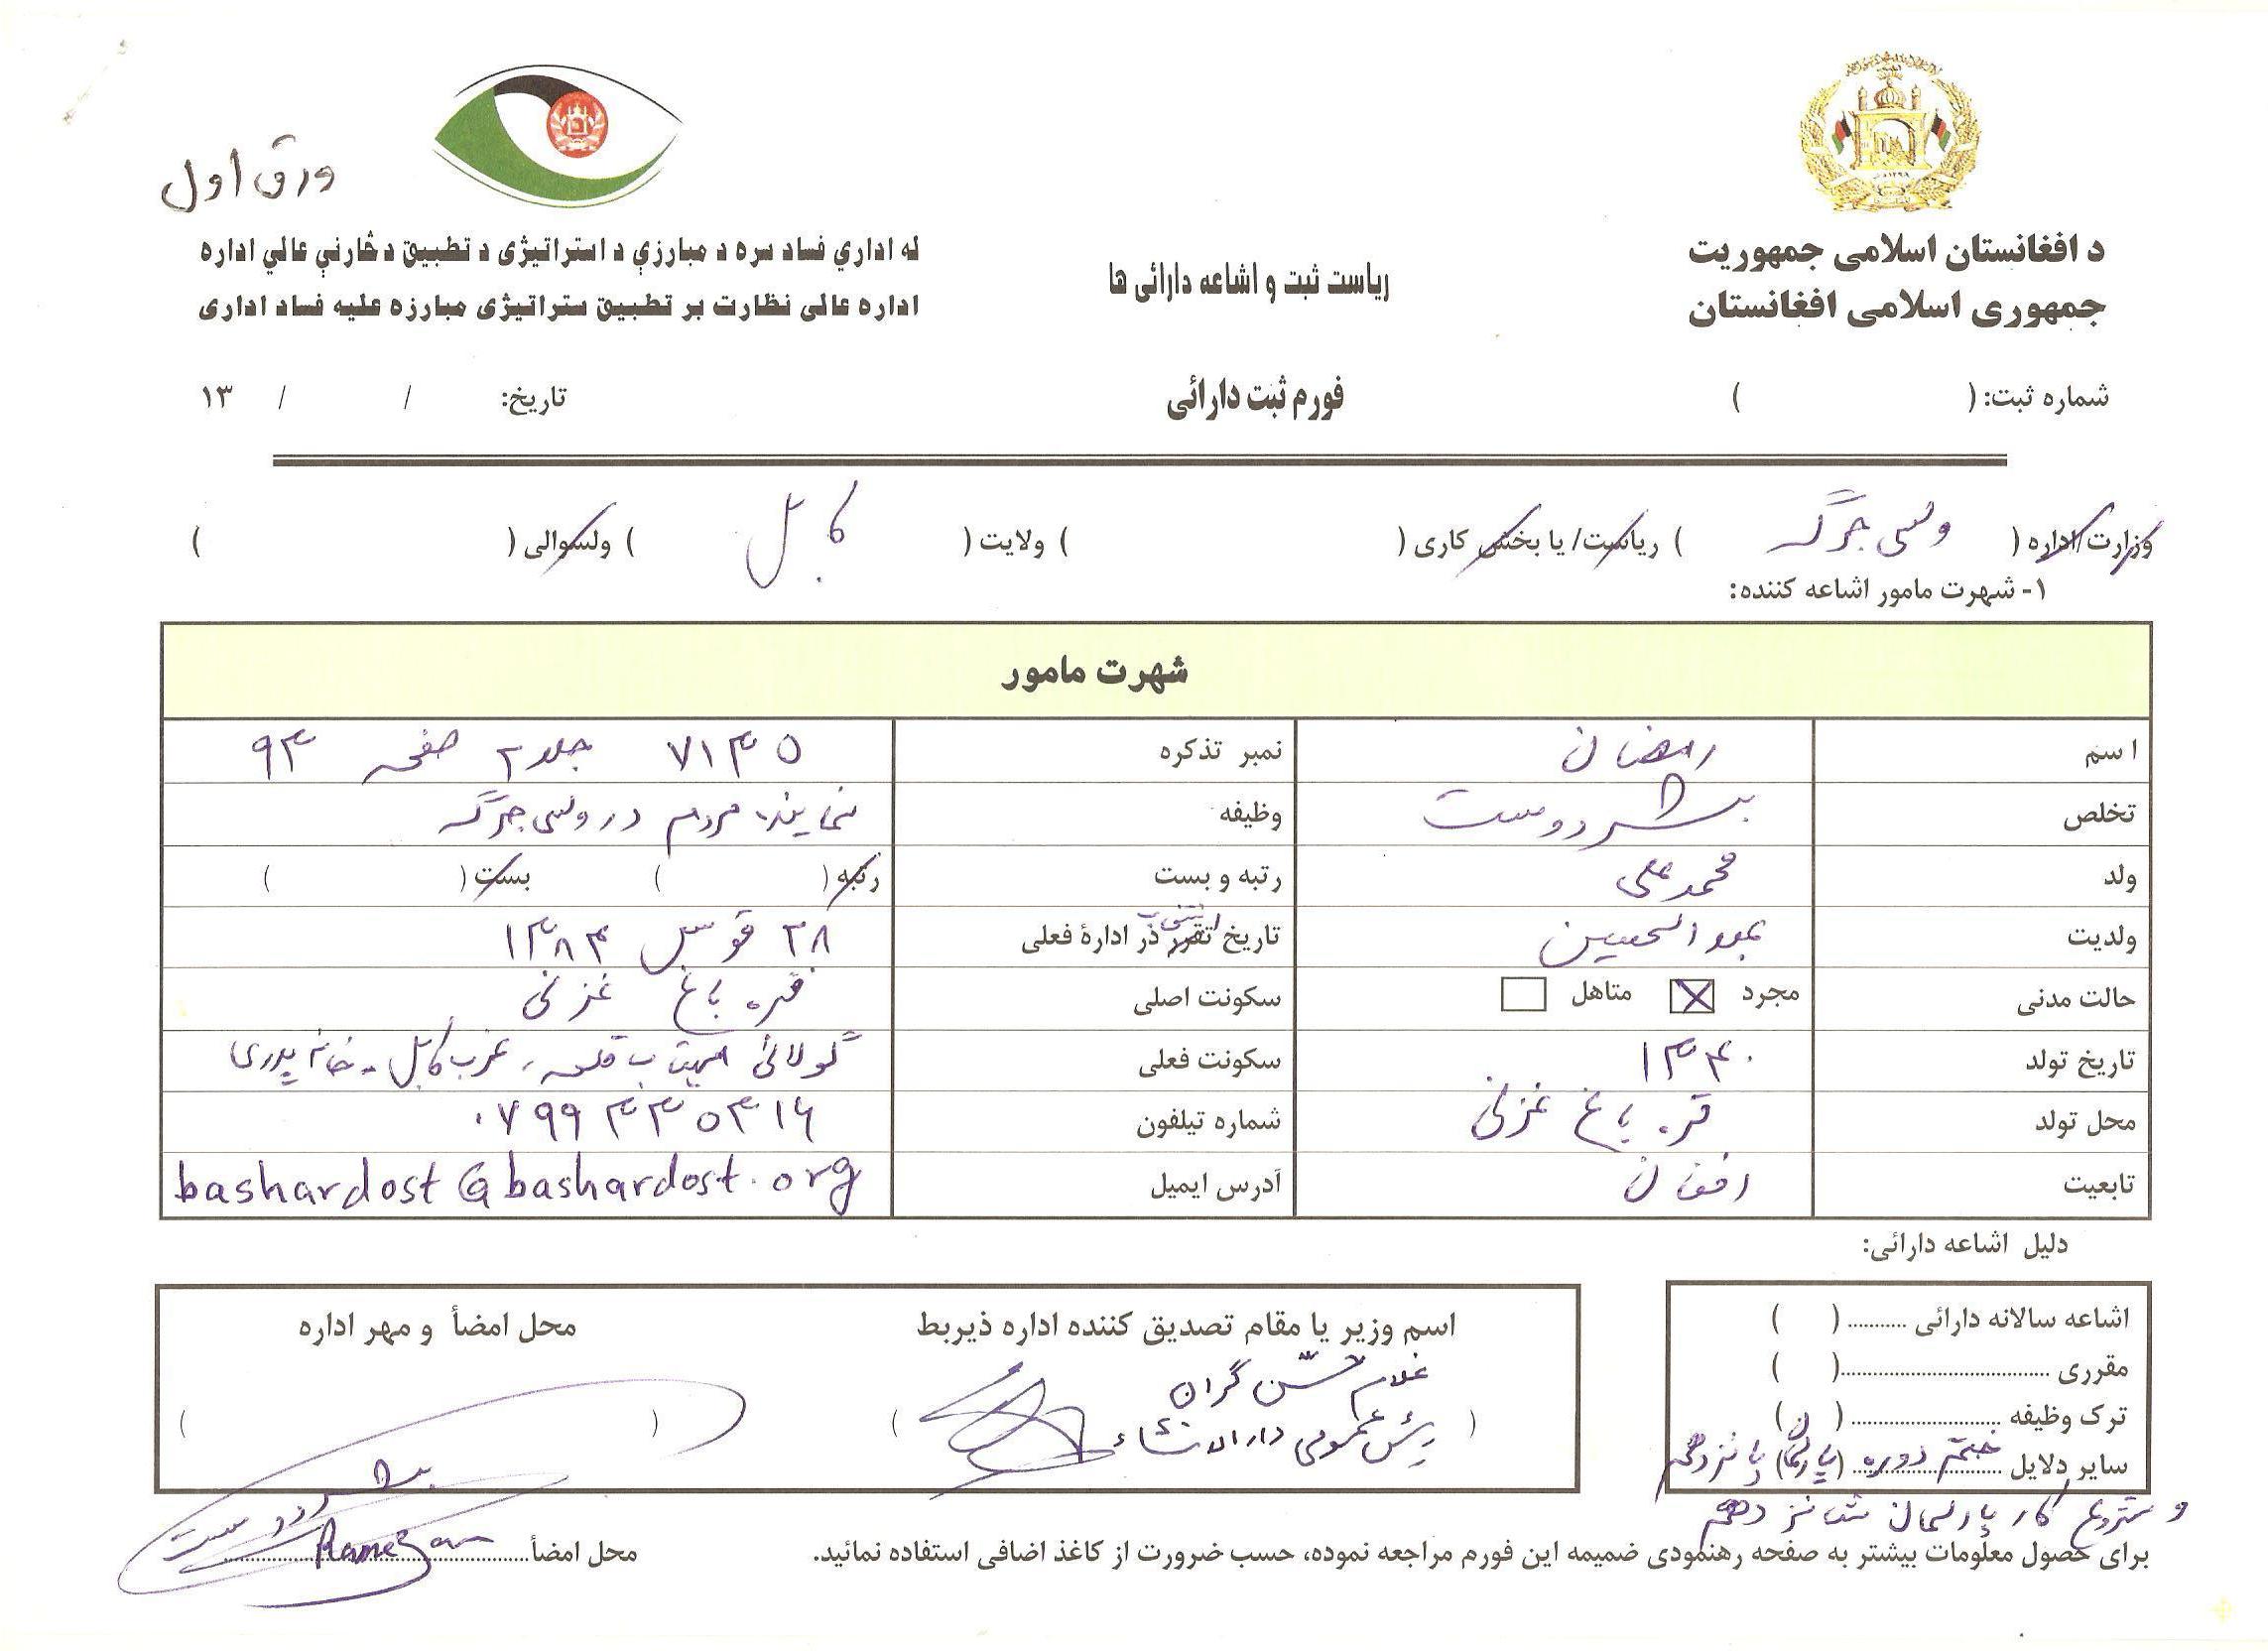 ورق اول
د افغانستان اسلامی جمهوریت
جمهوری اسلامی افغانستان
ریاست ثبت و اشاعه دارائی ها
له اداري فساد سره د مبارزې د استراتیژی د تطبیق د څارنې عالي اداره
اداره عالی نظارت بر تطبیق ستراتیژی مبارزه علیه فساد اداری
شماره ثبت: ( )
فورم ثبت دارائی
تاریخ: / / ۱۳
وزارت/اداره ( ولسی جرگه ) ریاست/ یا بخش کاری ( ) ولایت ( کابل ) ولسوالی ( )
۱- شهرت مامور اشاعه کننده:
شهرت مامور
اسم رمضان نمبر تذکره ۷۱۳۵ جلد ۲ صفحه ۹۳
تخلص بشردوست وظیفه نماینده مردم در ولسی جرگه
ولد محمد علی رتبه و بست رتبه ( ) بست ( )
ولدیت عبدالحسین تاریخ تقرر در ادارهٔ فعلی ۲۸ قوس ۱۳۸۴
حالت مدنی مجرد متاهل سکونت اصلی قره باغ غزنی
تاریخ تولد ۱۳۴۰ سکونت فعلی گولائی مهتاب قلعه، غرب کابل - خانه پدری
محل تولد قره باغ غزنی شماره تیلفون
تابعیت افغان آدرس ایمیل bashardost@bashardost.org
دلیل اشاعه دارائی:
اشاعه سالانه دارائی .......... ( )
مقرری .................................... ( )
ترک وظیفه .......................... ( )
سایر دلایل ختم دوره (پارلمان) پانزدهم
و شروع کار پارلمان شانزدهم
اسم وزیر یا مقام تصدیق کننده اداره ذیربط
غلام حسن گران
( رئیس عمومی دارالانشاء )
محل امضأ و مهر اداره
( )
بشردوست
برای حصول معلومات بیشتر به صفحه رهنمودی ضمیمه این فورم مراجعه نموده، حسب ضرورت از کاغذ اضافی استفاده نمائید.
محل امضأ Ramezan